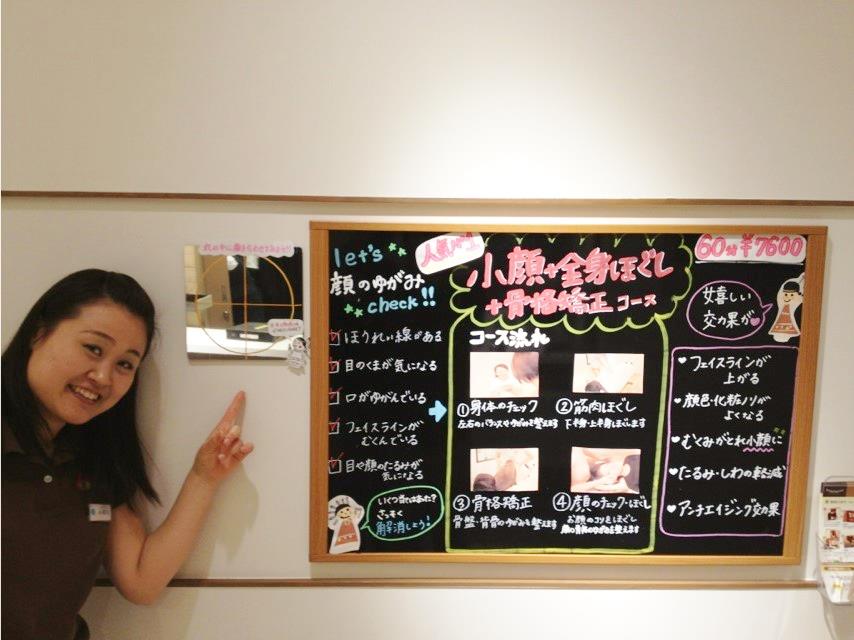 let's
顔のゆがみ
check!!
ほうれい線がある
目のくまが気になる
口がゆがんでいる
フェイスラインが
むくんでいる
目や顔のたるみが
気になる
いくつ当てはまった?
さっそく
解消しょう!
人気No.1
小顔+全身ほぐし
+骨格矯正コース
コース流れ
①身体のチェック
左右のバランスやゆがみを整えます
②筋肉ほぐし
下半身・上半身ほぐします
③骨格矯正
骨盤・背骨のゆがみを整えます
④顔のチェック・ほぐし
お顔のコリをほぐし
60分¥7600
嬉しい
効果が♥
♥フェイスラインが
上がる
♥顔色・化粧ノリが
よくなる
♥むくみがとれ小顔に
♥たるみ・しわの軽減
♥アンチエイジング効果